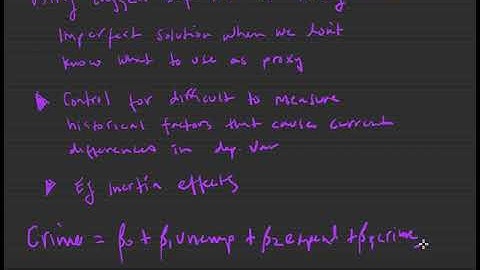 Using lagged
Imperfect solution when we don't
know what to use as proxy
Control for difficult to measure
historical factors that cause current
differences in dep. Var
Eg Inertia effects
Crime = β₀ + β₁unemp + β₂expend + β₃crime